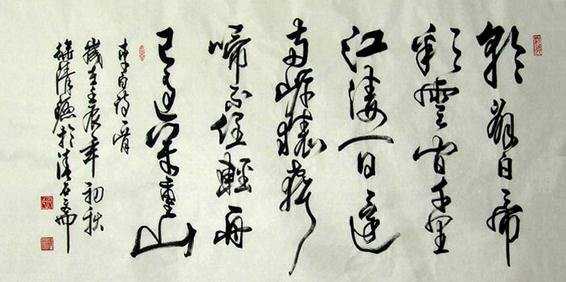 朝辭白帝
彩雲間千里
江陵一日還
兩岸猿聲
啼不住輕舟
已過萬重山
李白詩一首
歲在壬辰年初秋
於